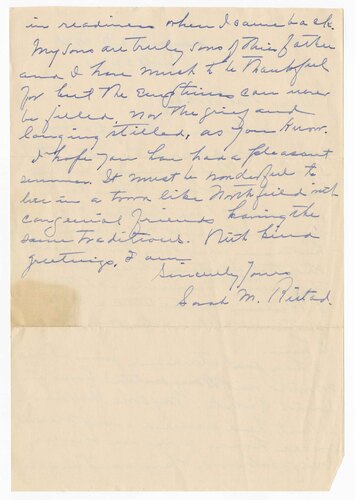 in readiness when I came back.
My sons are truly sons of their father
and I have much to be thankful
for but the emptiness can never
be filled, nor the grief and
longing stilled, as you know.
I hope you have had a pleasant
summer. It must be wonderful to
live in a town like Northfield with
congenial friends having the
same traditions. With kind
greetings, I am
Sincerely Yours
Sarah M. Ristad.